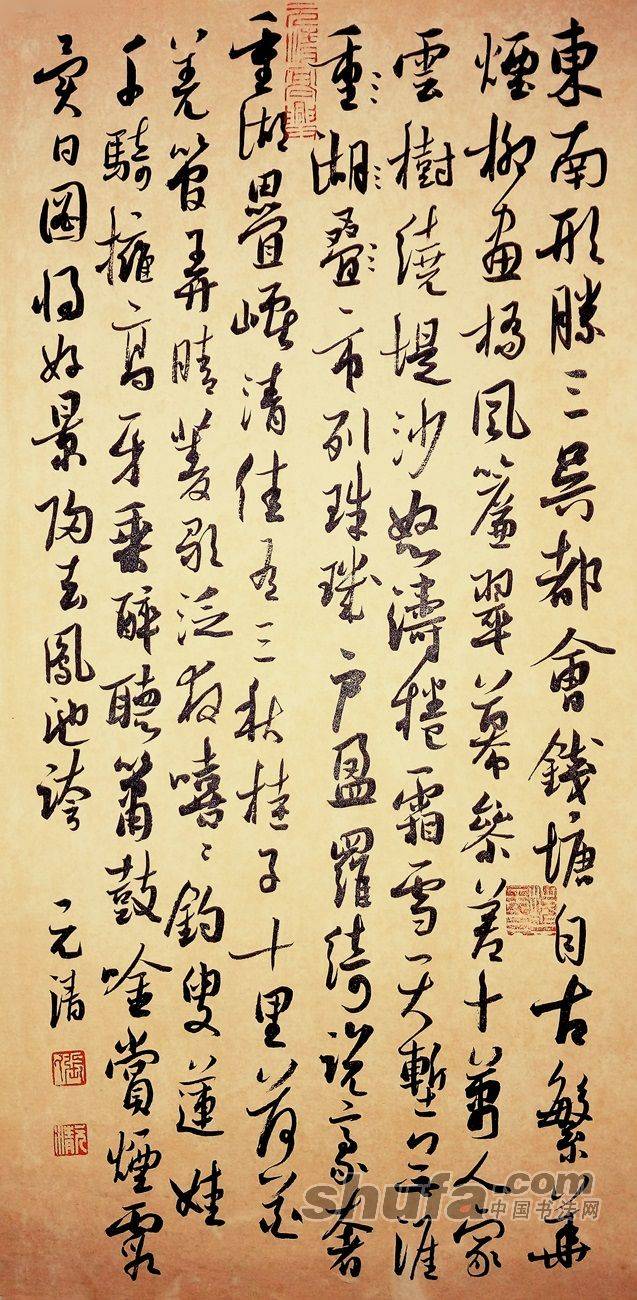 東南形勝三吴都會錢塘自古繁華
煙柳画橋風簾翠幕叅差十萬人家
雲樹繞堤沙怒濤捲霜雪天塹無涯
重湖叠市列珠璣户盈羅綺競豪奢
重湖疊巘清佳有三秋桂子十里荷花
羌管弄晴菱歌泛夜嘻〻釣叟蓮娃
千騎擁高牙乘醉聽簫鼓吟賞煙霞
異日圖將好景歸去鳳池誇
元清
張
元清
shufa.com
中国书法网